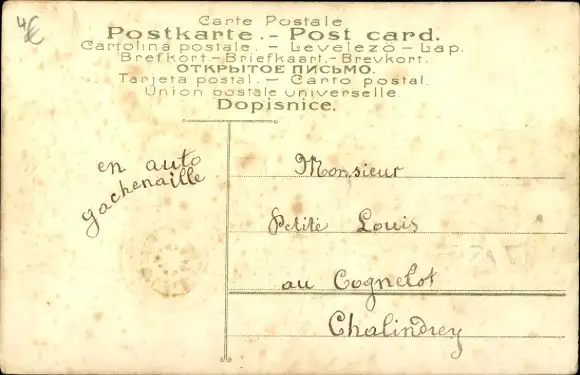 4€
Carte Postale
Postkarte.- Post card.
Cartolina postale. - Levelező - Lap.
Brefkort.- Briefkaart.- Brevkort.
ОТКРЫТОЕ ПИСЬМО.
Tarjeta postal. - Carto postal.
Union postale universelle.
Dopisnice.
en auto
gachenaille
Monsieur
Petité Louis
au Cognelot
Chalindrey